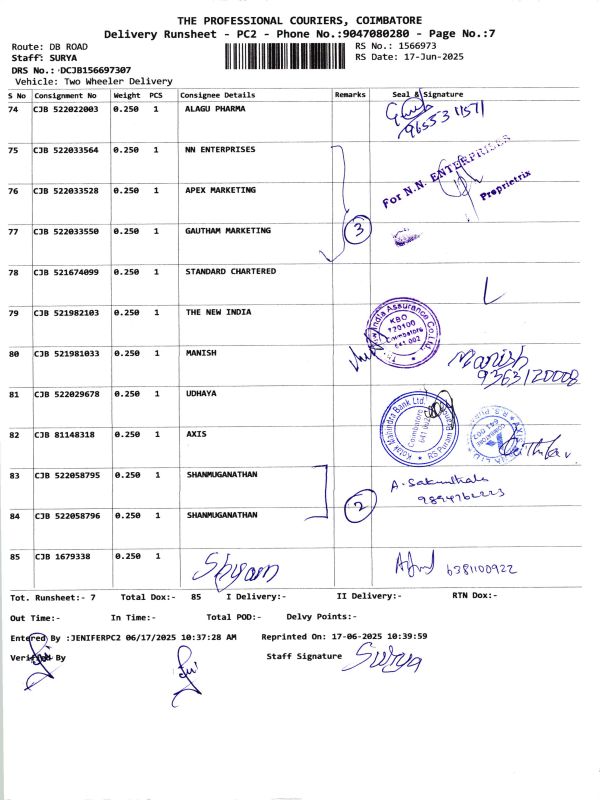 THE PROFESSIONAL COURIERS, COIMBATORE
Delivery Runsheet - PC2 - Phone No.:9047080280 - Page No.:7
Route: DB ROAD RS No.: 1566973
Staff: SURYA RS Date: 17-Jun-2025
DRS No.: DCJB156697307
Vehicle: Two Wheeler Delivery
S No Consignment No Weight PCS Consignee Details Remarks Seal & Signature
74 CJB 522022003 0.250 1 ALAGU PHARMA
9655311571
75 CJB 522033564 0.250 1 NN ENTERPRISES
For N.N. ENTERPRISES
Proprietrix
76 CJB 522033528 0.250 1 APEX MARKETING
77 CJB 522033550 0.250 1 GAUTHAM MARKETING 3
78 CJB 521674099 0.250 1 STANDARD CHARTERED
79 CJB 521982103 0.250 1 THE NEW INDIA
India Assurance Co. Ltd.
KBO
720100
Coimbatore
641 002
80 CJB 521981033 0.250 1 MANISH Manish
9363120008
81 CJB 522029678 0.250 1 UDHAYA
Kotak Mahindra Bank Ltd.
Coimbatore
RS Puram
82 CJB 81148318 0.250 1 AXIS
AXIS
R.S. PURAM
COIMBATORE
641 002
83 CJB 522058795 0.250 1 SHANMUGANATHAN A. Sakunthala
84 CJB 522058796 0.250 1 SHANMUGANATHAN 2
85 CJB 1679338 0.250 1 Shyam 6381100922
Tot. Runsheet:- 7 Total Dox:- 85 I Delivery:- II Delivery:- RTN Dox:-
Out Time:- In Time:- Total POD:- Delvy Points:-
Entered By :JENIFERPC2 06/17/2025 10:37:28 AM Reprinted On: 17-06-2025 10:39:59
Verified By Staff Signature Surya